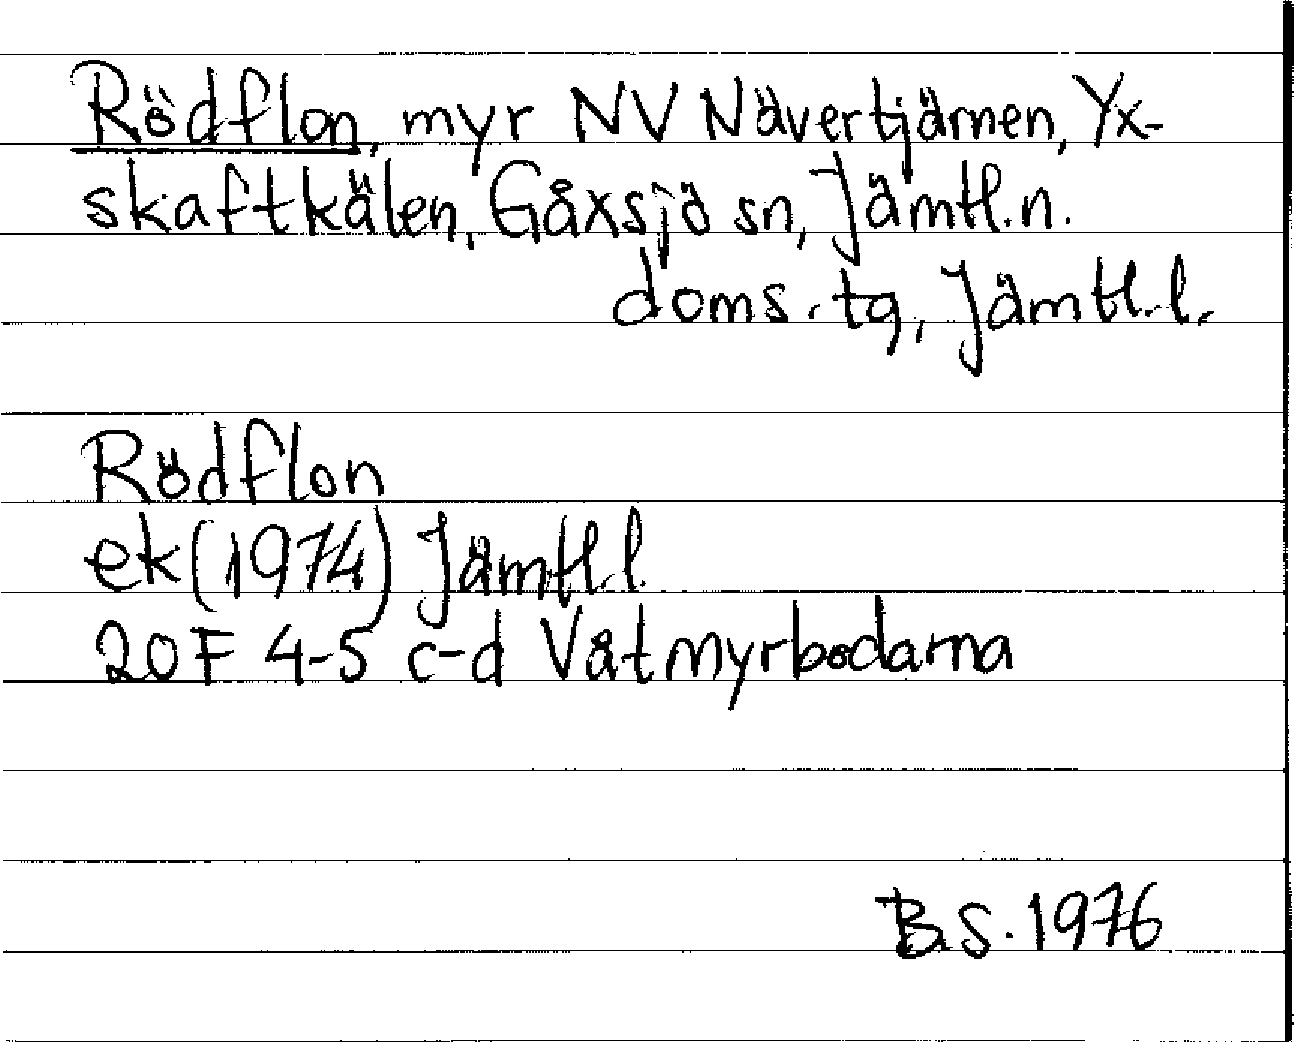 Rödflon, myr NV Nävertjärnen, Yx-
skaftkälen, Gåxsjö sn, Jämtl.n.
doms.tg, Jämtl.l.
Rödflon
ek (1974) Jämtl.l.
20F 4-5 c-d Våtmyrbodarna
B.S. 1976